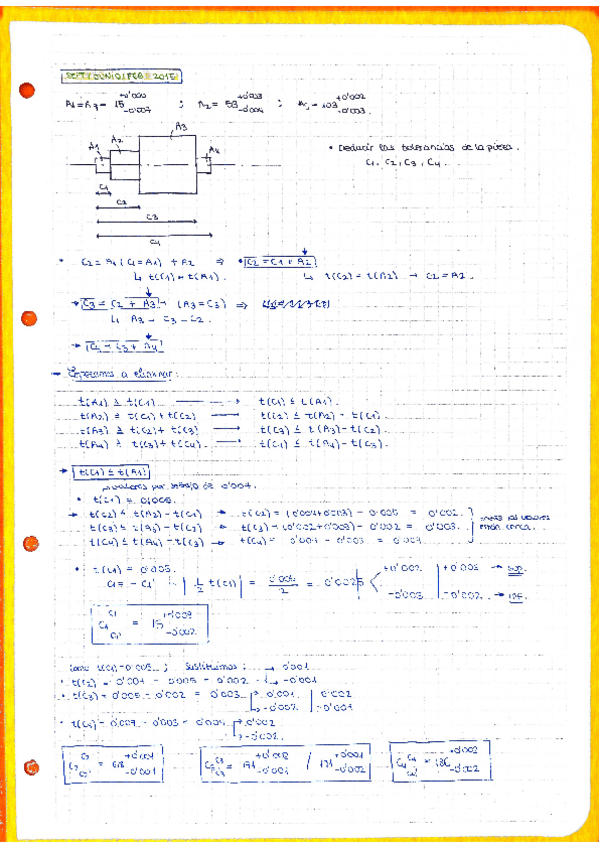 SEPT/JUNIO/FEB 2015
A1=A3= 15 -0'007 ; A2 = 53 -0'004 ; = 103 +0'002 -0'003
A3
A2
A1
A4
• Deducir las tolerancias de la pieza.
C1, C2, C3, C4.
C1
C2
C3
C4
• C2 = A1 (C1=A1) + A2 ⇒ • C2 = C1 + A2
↳ t(C1) = t(A1). ↳ t(C2) = t(A2) → C2 = A2
→ C3 = C2 + A3 → (A3=C3) ⇒
↳ A3 = C3 - C2.
→ C4 = C3 + A4
→ Empezamos a eliminar:
t(A1) ≥ t(C1) → t(C1) ≤ t(A1).
t(A2) ≥ t(C1) + t(C2) → t(C2) ≤ t(A2) - t(C1)
t(A3) ≥ t(C2) + t(C3) → t(C3) ≤ t(A3) - t(C2)
t(A4) ≥ t(C3) + t(C4) → t(C4) ≤ t(A4) - t(C3).
→ t(C1) ≤ t(A1)
valores por debajo de 0'007.
• t(C1) = 0'005
→ t(C2) ≤ t(A2) - t(C1) → t(C2) = - 0'005 = 0'002
t(C3) ≤ t(A3) - t(C2) → t(C3) = (0'002+0'003) - 0'002 = 0'003.
t(C4) ≤ t(A4) - t(C3) → t(C4) = 0'007 - 0'003 = 0'004
los valores
están cerca.
• t(C1) = 0'005.
C1 = - C1' | 1/2 t(C1) | = 0'005/2 = 0'0025 < +0'002 | +0'003 → sup.
-0'003 | -0'002 → inf.
C1 = 15 -0'002
Como t(C1) = 0'005 ; Sustituimos: → 0'001
• t(C2) = 0'007 - 0'005 = 0'002 → -0'001
• t(C3) = 0'005 - 0'002 = 0'003 → 0'001 | 0'002
→ -0'002 | -0'001
• t(C4) = 0'007 - 0'003 = 0'004 → 0'002
→ -0'002.
C2 = 68 +0'001 -0'001
C3 = 171 -0'001 / 171 +0'001 -0'002
C4 = 186 +0'002 -0'002